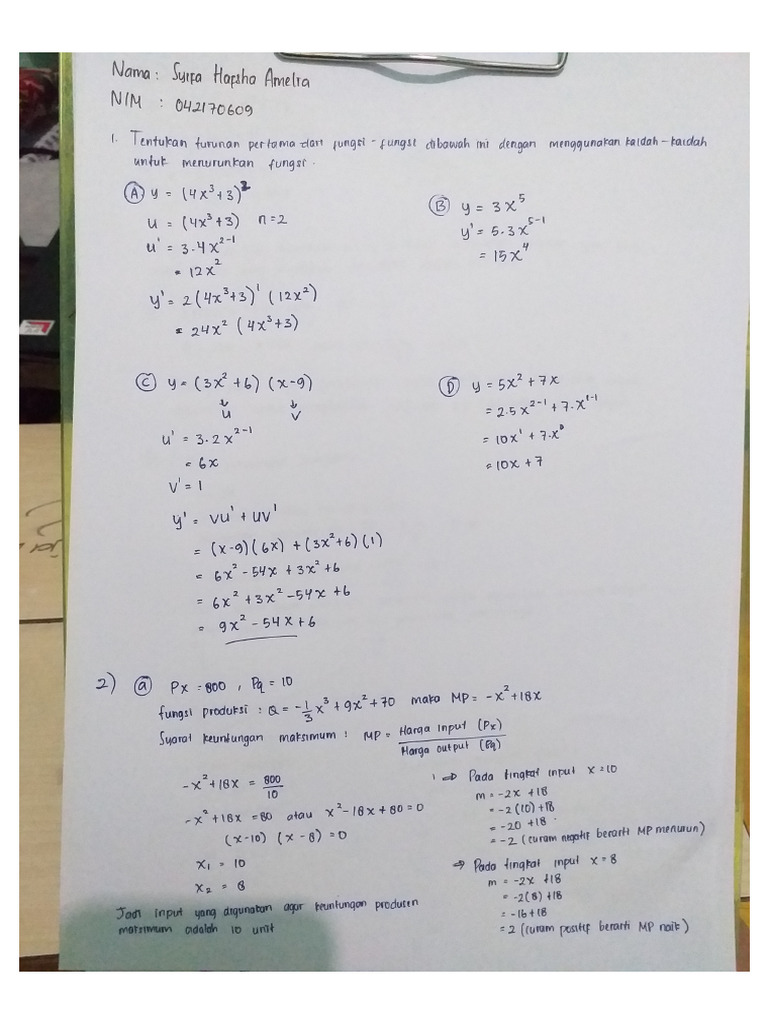 Nama : Syifa Hafsha Amelia
NIM : 042170609
1. Tentukan turunan pertama dari fungsi-fungsi dibawah ini dengan menggunakan kaidah-kaidah
untuk menurunkan fungsi.
(A) y = (4x³+3)²
u = (4x³+3) n=2
u' = 3.4x²⁻¹
= 12x²
y' = 2(4x³+3)¹ (12x²)
= 24x² (4x³+3)
(B) y = 3x⁵
y' = 5.3x⁵⁻¹
= 15x⁴
(C) y = (3x²+6) (x-9)
↓ ↓
u v
u' = 3.2x²⁻¹
= 6x
v' = 1
y' = vu' + uv'
= (x-9)(6x) + (3x²+6)(1)
= 6x² - 54x + 3x² + 6
= 6x² + 3x² - 54x + 6
= 9x² - 54x + 6
(D) y = 5x² + 7x
= 2.5x²⁻¹ + 7.x¹⁻¹
= 10x¹ + 7.x⁰
= 10x + 7
2) (a) Px = 800 , Pq = 10
fungsi produksi : Q = -1/3 x³ + 9x² + 70 maka MP = -x² + 18x
Syarat keuntungan maksimum : MP = Harga input (Px) / Harga output (Pq)
-x² + 18x = 800/10
-x² + 18x = 80 atau x² - 18x + 80 = 0
(x-10) (x-8) = 0
x₁ = 10
x₂ = 8
Jadi input yang digunakan agar keuntungan produsen
maksimum adalah 10 unit
⇒ Pada tingkat input x = 10
m = -2x + 18
= -2(10) + 18
= -20 + 18
= -2 (curam negatif berarti MP menurun)
⇒ Pada tingkat input x = 8
m = -2x + 18
= -2(8) + 18
= -16 + 18
= 2 (curam positif berarti MP naik)